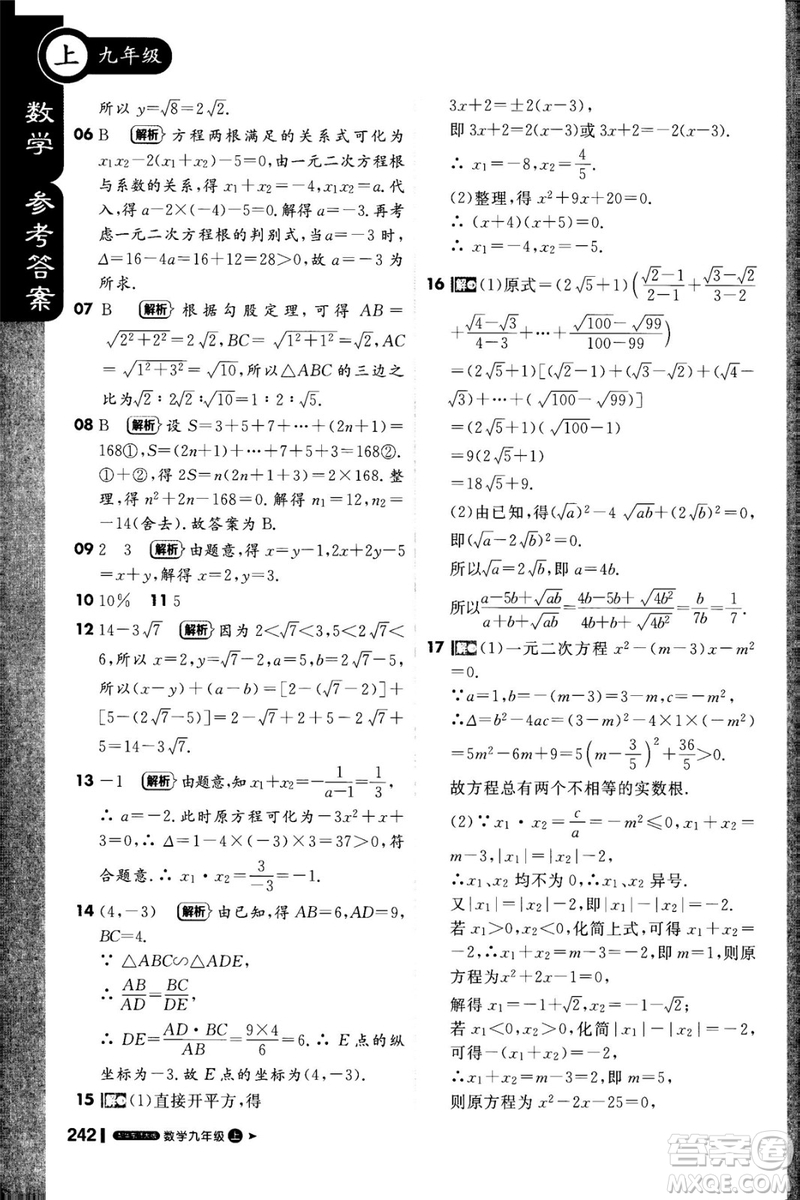 上 九年级
数学 参考答案
所以 y=√8=2√2.
06 B 解析 方程两根满足的关系式可化为
x₁x₂-2(x₁+x₂)-5=0,由一元二次方程根
与系数的关系,得 x₁+x₂=-4,x₁x₂=a.代
入,得 a-2×(-4)-5=0.解得 a=-3.再考
虑一元二次方程根的判别式,当 a=-3 时,
Δ=16-4a=16+12=28>0,故 a=-3 为
所求.
07 B 解析 根据勾股定理,可得 AB=
√(2²+2²)=2√2,BC=√(1²+1²)=√2,AC
=√(1²+3²)=√10,所以△ABC 的三边之
比为√2:2√2:√10=1:2:√5.
08 B 解析 设 S=3+5+7+…+(2n+1)=
168①,S=(2n+1)+…+7+5+3=168②.
①+②,得 2S=n(2n+1+3)=2×168.整
理,得 n²+2n-168=0.解得 n₁=12,n₂=
-14(舍去).故答案为 B.
09 2 3 解析 由题意,得 x=y-1,2x+2y-5
=x+y,解得 x=2,y=3.
10 10% 11 5
12 14-3√7 解析 因为 2<√7<3,5<2√7<
6,所以{√7}=√7-2,{2√7}=2√7-5,
所以(2-x)(5-y)+5=[2-(√7-2)]×
[5-(2√7-5)]+5=(4-√7)(10-2√7)+
5=14-3√7.
13 -1 解析 由题意,知 x₁+x₂=-1/(a-1)=1/3,
∴ a=-2.此时原方程可化为-3x²+x+
3=0,∴ Δ=1-4×(-3)×3=37>0,符
合题意,∴ x₁·x₂=3/(-3)=-1.
14 (4,-3) 解析 由已知,得 AB=6,AD=9,
BC=4.
∵ △ABC∽△ADE,
∴ AB/AD=BC/DE,
∴ DE=AD·BC/AB=9×4/6=6.∴ E 点的纵
坐标为-3.故 E 点的坐标为(4,-3).
15 解 (1)直接开平方,得
3x+2=±2(x-3),
即 3x+2=2(x-3)或 3x+2=-2(x-3).
∴ x₁=-8,x₂=4/5.
(2)整理,得 x²+9x+20=0.
∴ (x+4)(x+5)=0.
∴ x₁=-4,x₂=-5.
16 解 (1)原式=(2√5+1)((√2-1)/(2-1)+(√3-√2)/(3-2)
+(√4-√3)/(4-3)+…+(√100-√99)/(100-99))
=(2√5+1)[(√2-1)+(√3-√2)+(√4-
√3)+…+(√100-√99)]
=(2√5+1)(√100-1)
=9(2√5+1)
=18√5+9.
(2)由已知,得(√a)²-4√ab+(2√b)²=0,
即(√a-2√b)²=0.
所以√a=2√b,即 a=4b.
所以(a-5b+√ab)/(a+b+√ab)=(4b-5b+√4b²)/(4b+b+√4b²)=b/7b=1/7.
17 解 (1)一元二次方程 x²-(m-3)x-m²
=0.
∵a=1,b=-(m-3)=3-m,c=-m²,
∴Δ=b²-4ac=(3-m)²-4×1×(-m²)
=5m²-6m+9=5(m-3/5)²+36/5>0.
故方程总有两个不相等的实数根.
(2)∵x₁·x₂=c/a=-m²≤0,x₁+x₂=
m-3,|x₁|=|x₂|-2,
∴x₁、x₂ 均不为 0,∴x₁、x₂ 异号.
又|x₁|=|x₂|-2,即|x₁|-|x₂|=-2,
若 x₁>0,x₂<0,化简上式,可得 x₁+x₂
=-2,∴m-3=-2,即 m=1,则原
方程为 x²+2x-1=0,
解得 x₁=-1+√2,x₂=-1-√2.
若 x₁<0,x₂>0,化简|x₁|-|x₂|=-2,
可得-(x₁+x₂)=-2.
∴x₁+x₂=m-3=2,∴m=5.
则原方程为 x²-2x-25=0,
242 数学九年级 上
答案圈
MXQE.COM